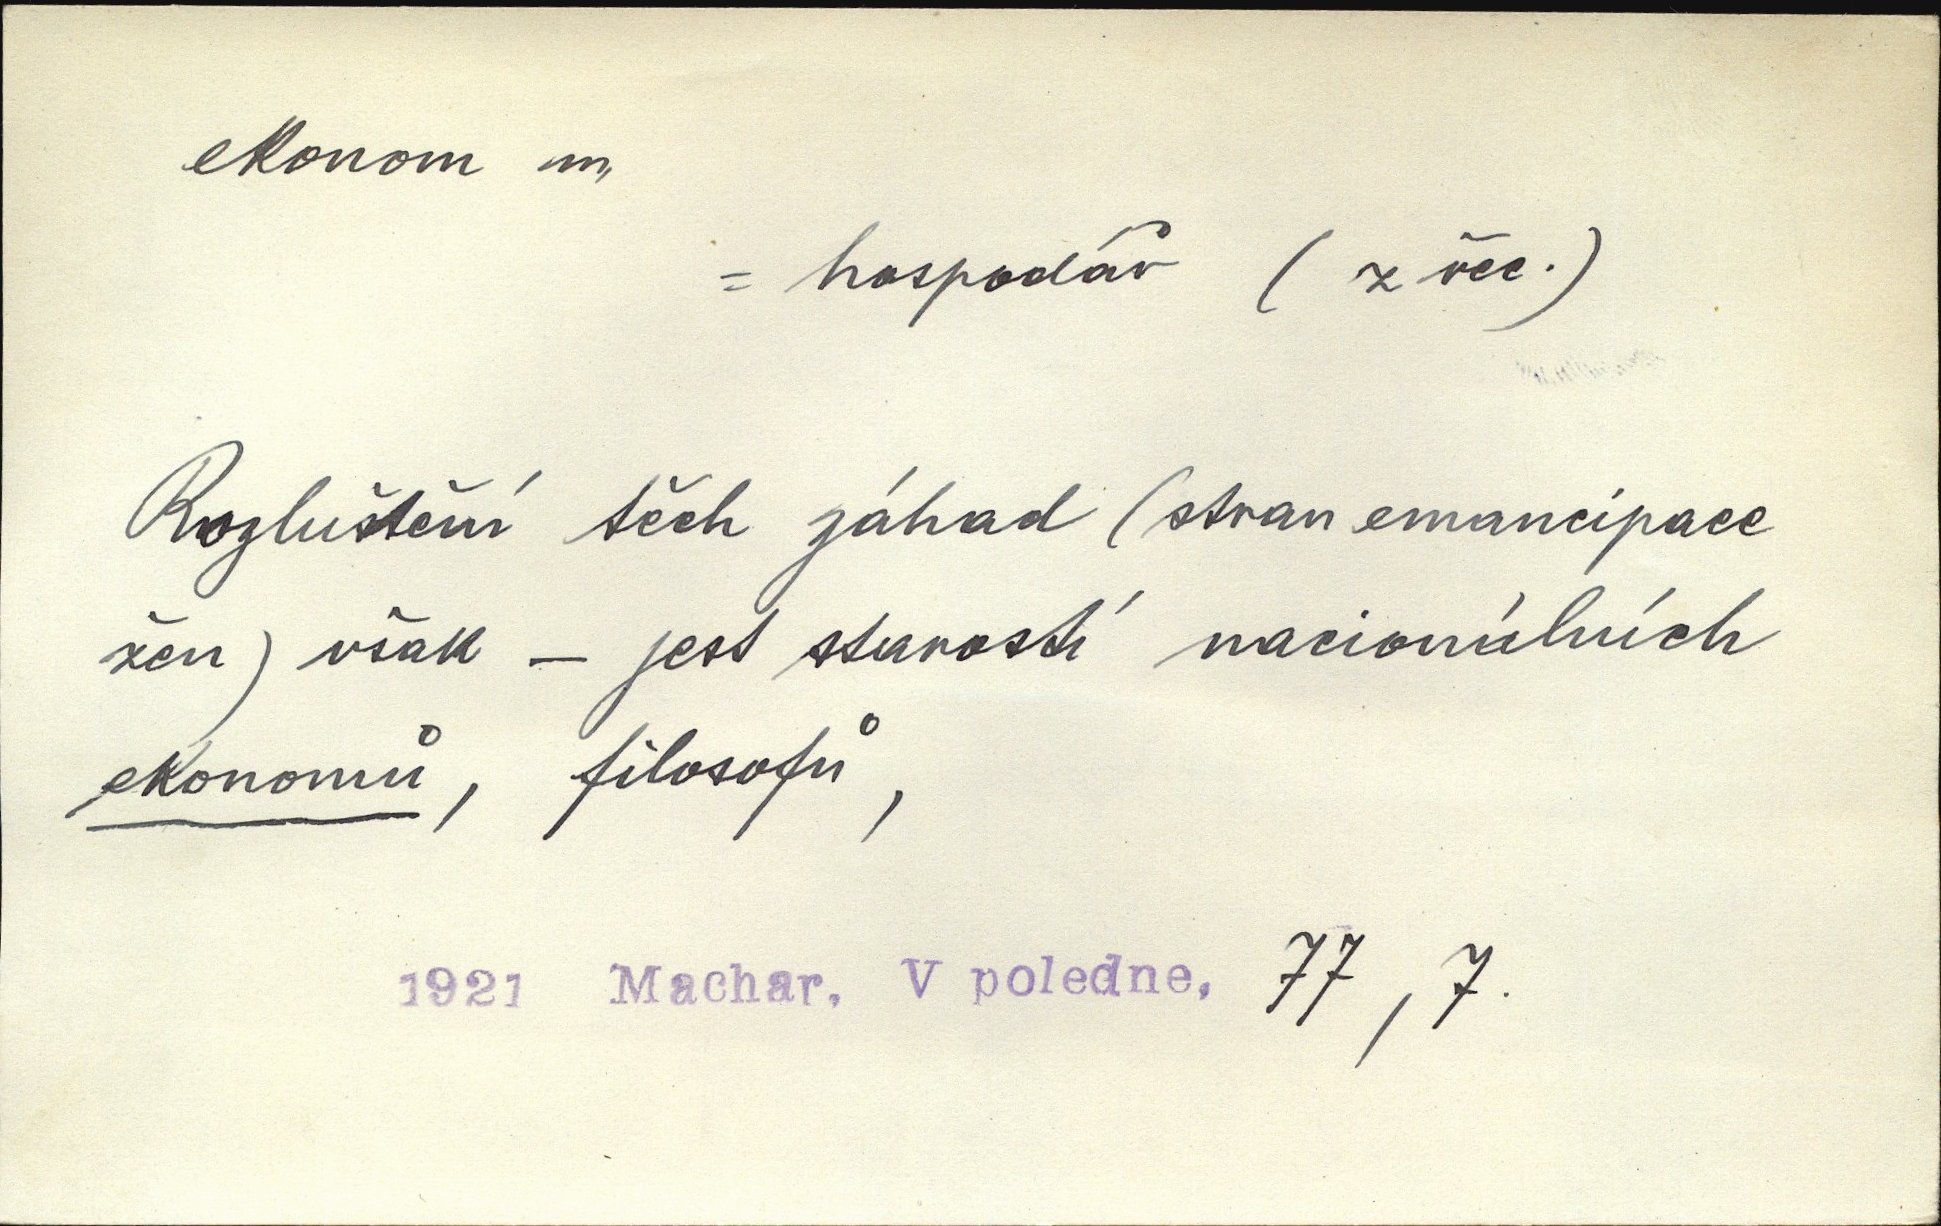 ekonom m,
= hospodář ( z řec.)
Rozluštění těch záhad (stran emancipace
žen) však – jest starostí nacionálních
ekonomů, filosofů,
1921 Machar. V poledne. 77, 7.